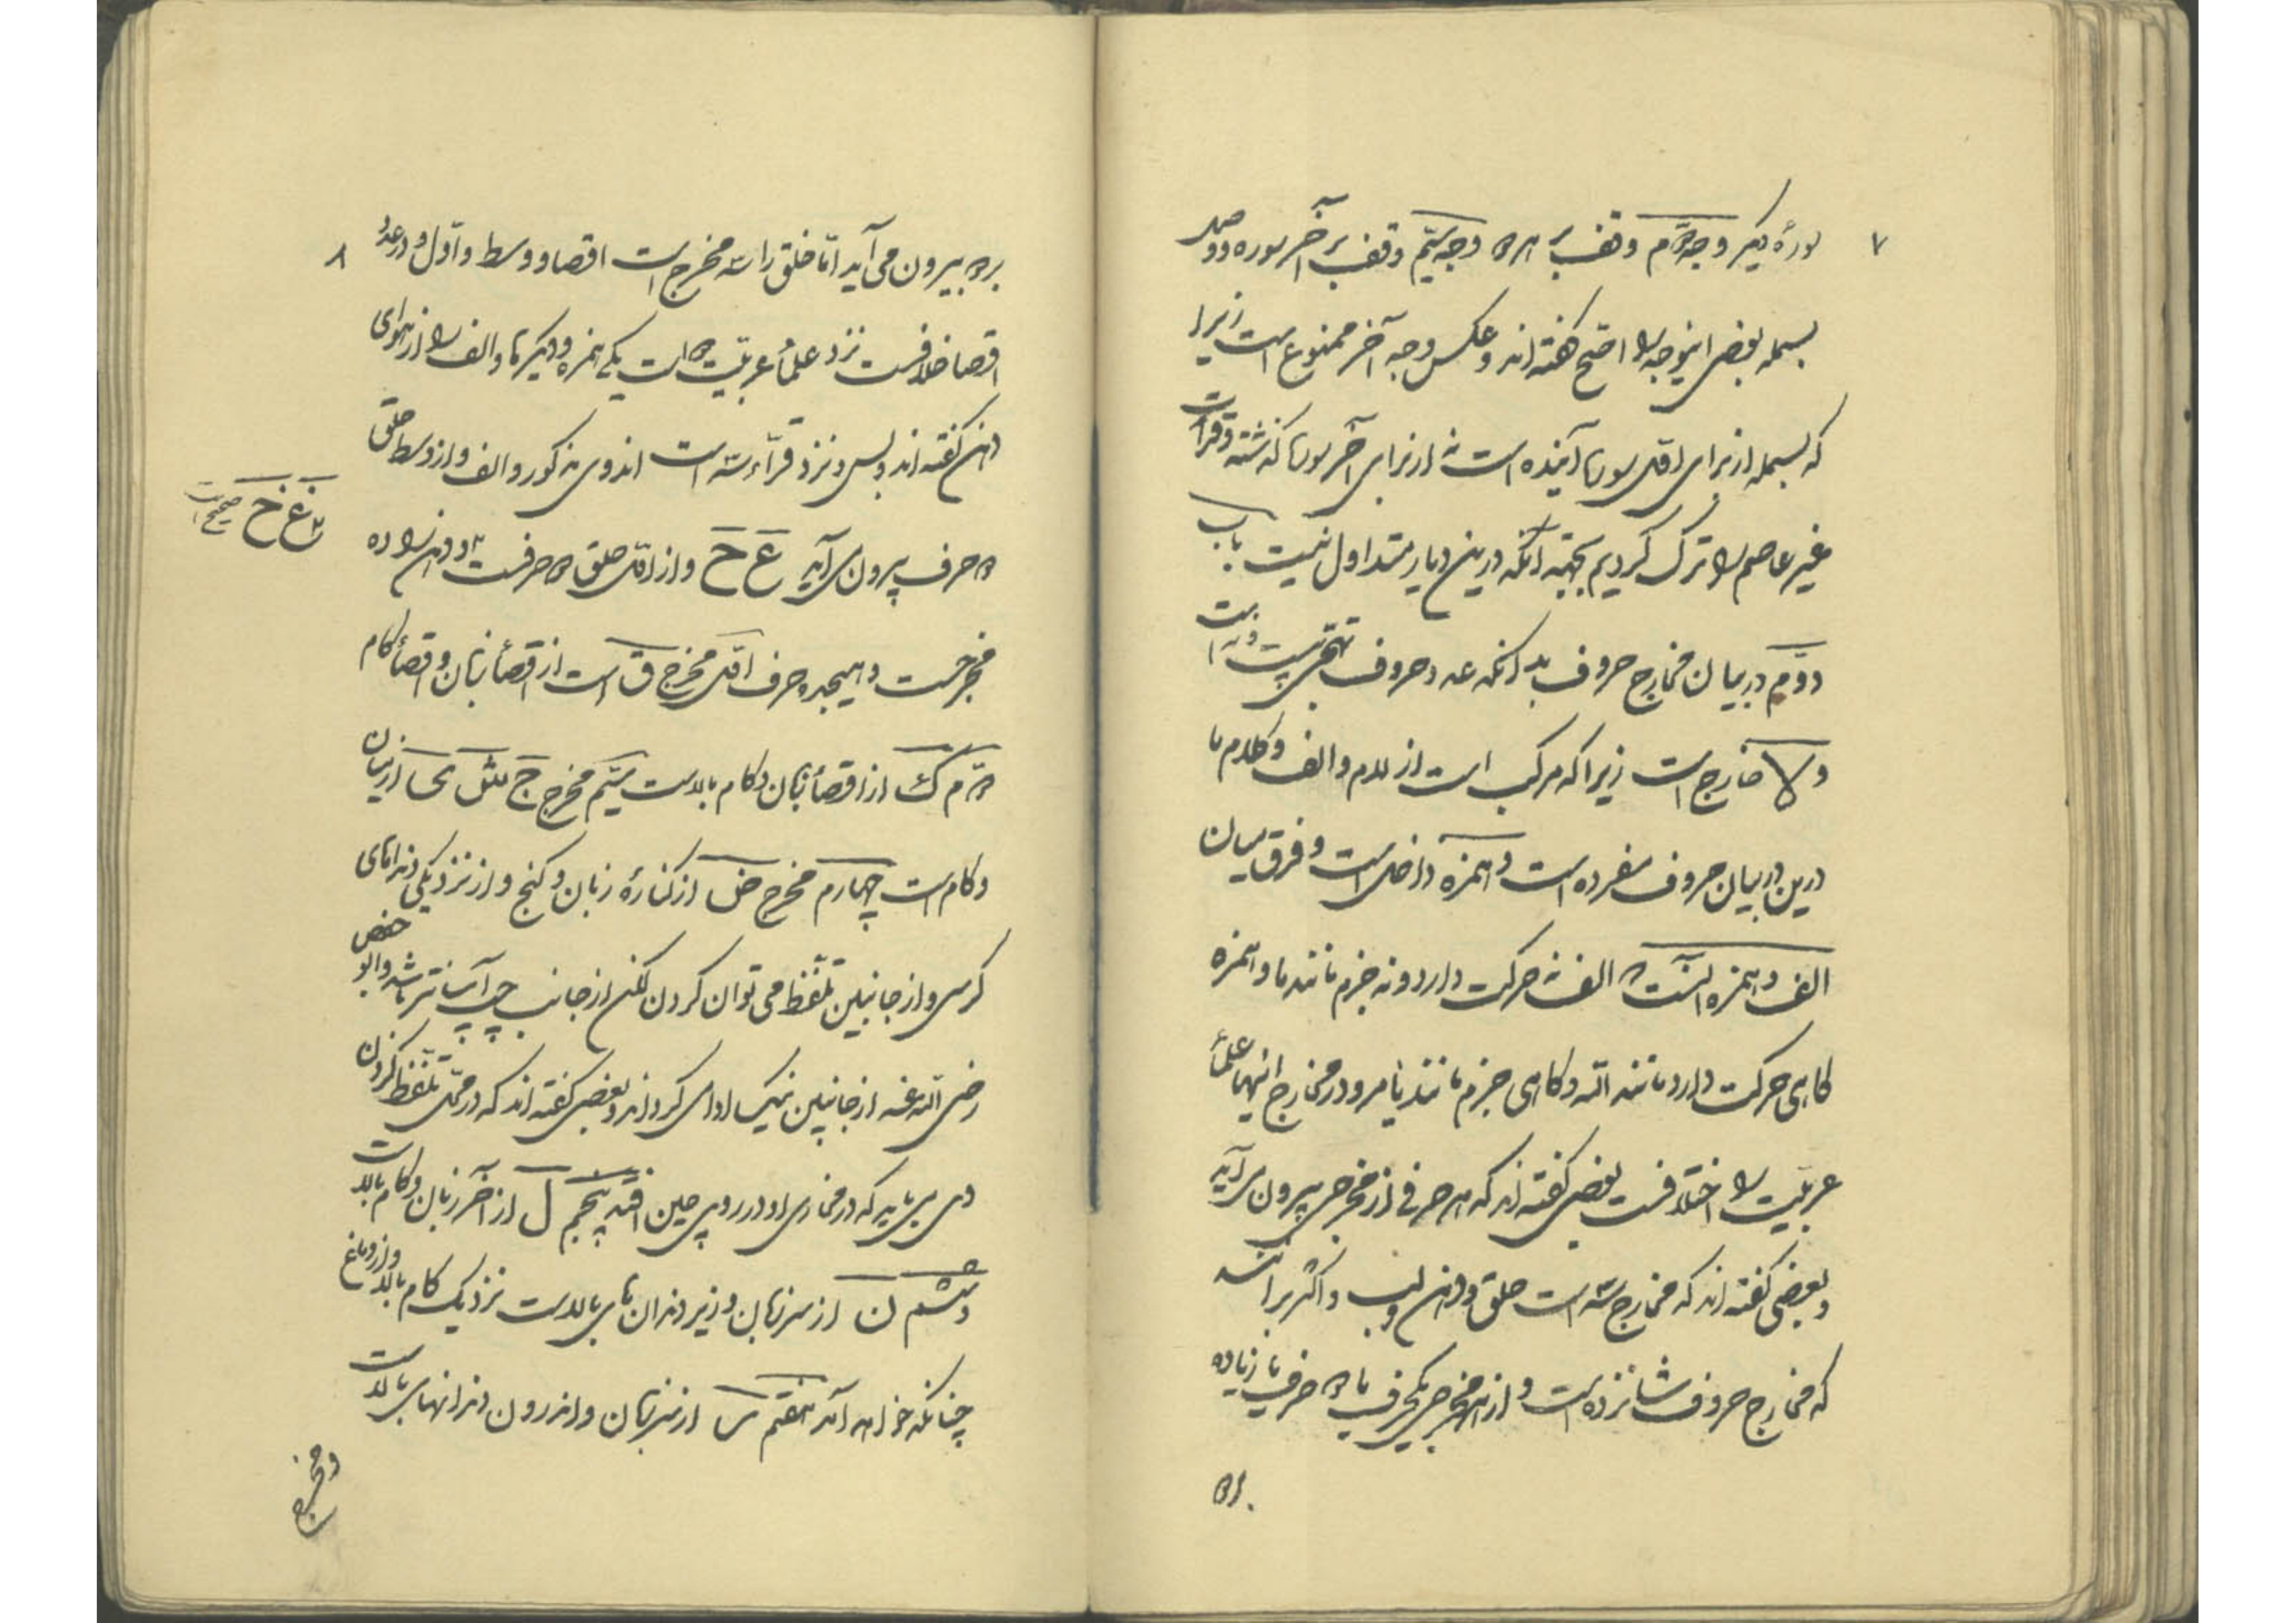 ۷
سورهٔ دیگر وجه دوم وقف بر هر دو وجه سیّم وقف بر آخر سوره و وصل
بسمله بعضی اینوجه را اصحّ گفته‌اند و عکس وجه آخر ممنوع است زیرا
که بسمله از برای اوّل سورهٔ آینده است نه از برای آخر سورهٔ گذشته و قرائت
غیر عاصم را ترک کردیم بجهتهٔ آنکه درین دیار متداول نیست باب
دوّم در بیان مخارج حروف بدانکه عدد حروف تهجّی بیست و نه است
و لا خارج است زیرا که مرکب است از لام و الف و کلام ما
درین در بیان حروف مفرده است و همزه داخل است و فرق میان
الف و همزه آنست که الف نه حرکت دارد و نه جزم مانند ما و همزه
کاهی حرکت دارد مانند الله و کاهی جزم مانند یامر و در مخارج اینها علمأ
عربیّت را اختلافست بعضی کفته‌اند که هر حرفی از مخرجی بیرون می‌آید
و بعضی کفته‌اند که مخارج سه است حلق و دهن و لب و اکثر برانند
که مخارج حروف شانزده است و از هر مخرجی یکحرف یا دو حرف یا زیاده
۸
بیرون می‌آید امّا حلق را سه مخرج است اقصا و وسط و اوّل و در عدد
اقصا خلافست نزد علمأ عربیّت دو است یکی همزه و دیگر ها و الف را از هوای
دهن کفته‌اند و بس و نزد قرّاء سه است اند وی مذکور و الف و از وسط حلق
دو حرف بیرون می‌آید ع ح و از اوّل حلق دو حرفست و دهن را ده
غ خ صحیح است
مخرجست و هیجده حرف اوّل مخرج ق است از اقصأ زبان و اقصأ کام
دوّم ک از اقصأ زبان و کام بالاست سیّم مخرج ج ش ی از میان زبان
و کام است چهارم مخرج ض از کنارهٔ زبان و کنج و از نزدیکی دندانهای
کرسی و از جانبین تلفّظ می توان کردن لکن از جانب چپ آسانتر باشد و ابو حفص
رضی الله عنه از جانبین نیک ادا می کردند و بعضی کفته‌اند که در محلّ تلفّظ کردن
وی می باید که در محاذی او در روی چین افتد پنجم ل از آخر زبان و کام بالاست
و ششم ن از سر زبان و زیر دندان های بالاست نزدیک کام بالا و از دماغ
چنانکه خواهد آمد هفتم ر از سر زبان و اندرون دندانهای بالاست
و مخرج